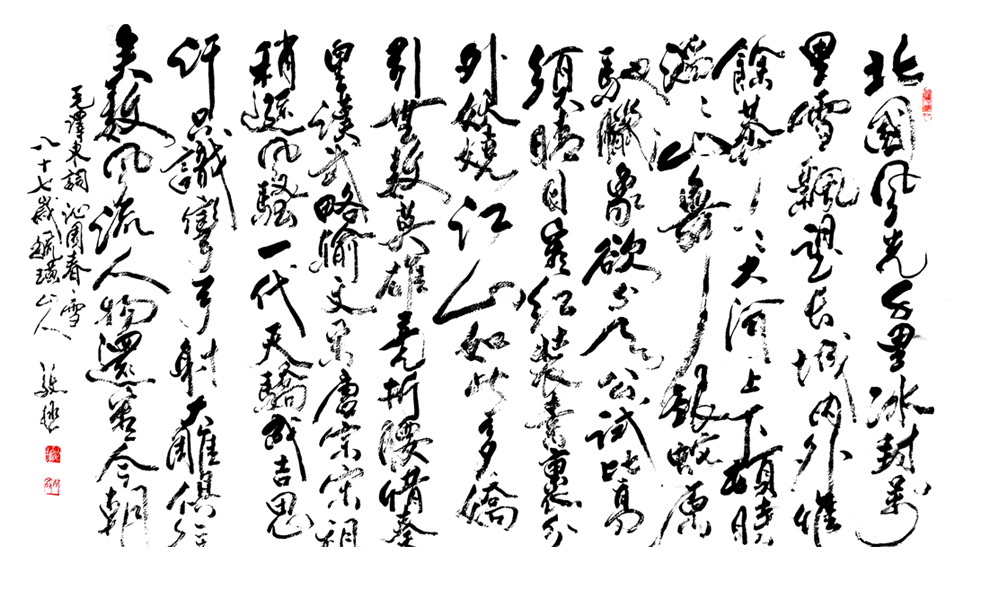 北國風光千里冰封萬
里雪飄望長城內外惟
餘莽〻大河上下頓時
滔〻山舞銀蛇原
馳臘象欲與天公試比高
須晴日看紅裝素裹分
外妖嬈江山如此多嬌
引無數英雄竞折腰惜秦
皇漢武略輸文采唐宗宋祖
稍遜風騷一代天驕成吉思
汗只識彎弓射大雕俱往
矣數風流人物還看今朝
毛澤東詞沁園春雪
八十七歲山人